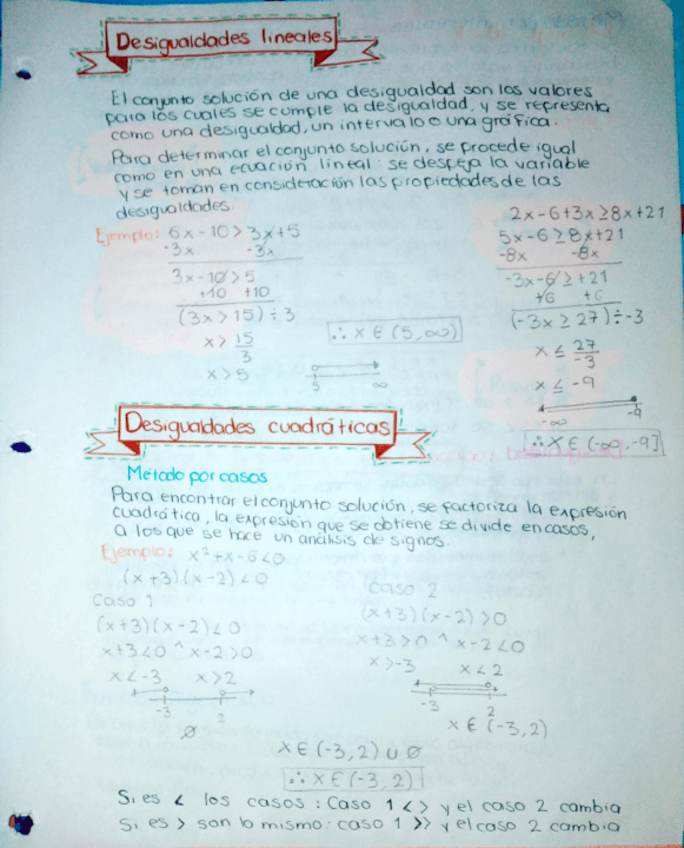 Desigualdades lineales
El conjunto solución de una desigualdad son los valores
para los cuales se cumple la desigualdad, y se representa
como una desigualdad, un intervalo o una gráfica.
Para determinar el conjunto solución, se procede igual
como en una ecuación lineal: se despeja la variable
y se toman en consideración las propiedades de las
desigualdades.
Ejemplo: 6x - 10 > 3x + 5
-3x -3x
3x - 10 > 5
+10 +10
(3x > 15) ÷ 3
x > 15/3
x > 5
∴ x ∈ (5, ∞)
5 ∞
2x - 6 + 3x ≥ 8x + 21
5x - 6 ≥ 8x + 21
-8x -8x
-3x - 6 ≥ + 21
+6 +6
(-3x ≥ 27) ÷ -3
x ≤ 27/-3
x ≤ -9
-∞ -9
∴ x ∈ (-∞, -9]
Desigualdades cuadráticas
Método por casos
Para encontrar el conjunto solución, se factoriza la expresión
cuadrática, la expresión que se obtiene se divide en casos,
a los que se hace un análisis de signos.
Ejemplo: x² + x - 6 < 0
(x+3)(x-2) < 0
Caso 1
(x+3)(x-2) < 0
x+3<0 ^ x-2>0
x < -3 x > 2
-3 2
∅
Caso 2
(x+3)(x-2) > 0
x+3>0 ^ x-2<0
x > -3 x < 2
-3 2
x ∈ (-3, 2)
x ∈ (-3, 2) ∪ ∅
∴ x ∈ (-3, 2)
Si es < los casos: Caso 1 < > y el caso 2 cambia
Si es > son lo mismo: caso 1 >> y el caso 2 cambia